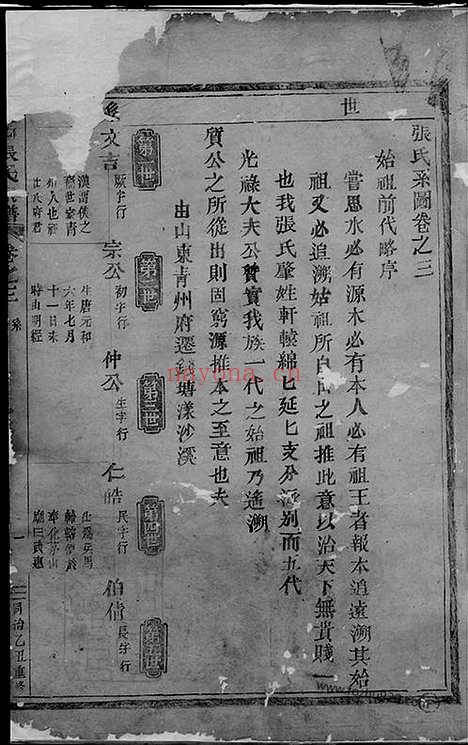 張氏系圖卷之三
始祖前代略序
嘗思水必有源木必有本人必有祖王者報本追遠溯其始
祖又必追溯始祖所自出之祖推此意以治天下無貴賤一
也我張氏肇姓軒轅綿匕延匕支分派別而五代
光祿大夫公贊實我族一代之始祖乃遙溯
質公之所從出則固窮源推本之至意也夫
由山東青州府遷 塘漾沙溪
世
第一世
第二世
第三世
第四世
第五世
文吉
厥字行
宗公
初字行
仲公
生字行
仁皓
民字行
伯倩
長字行
漢留侯之
裔世家青
州人也祖
仕氏府君
生唐元和
六年七月
十一日未
時由明經
奉化
張氏
卷之三
系
同治乙丑重修
nayona.cn